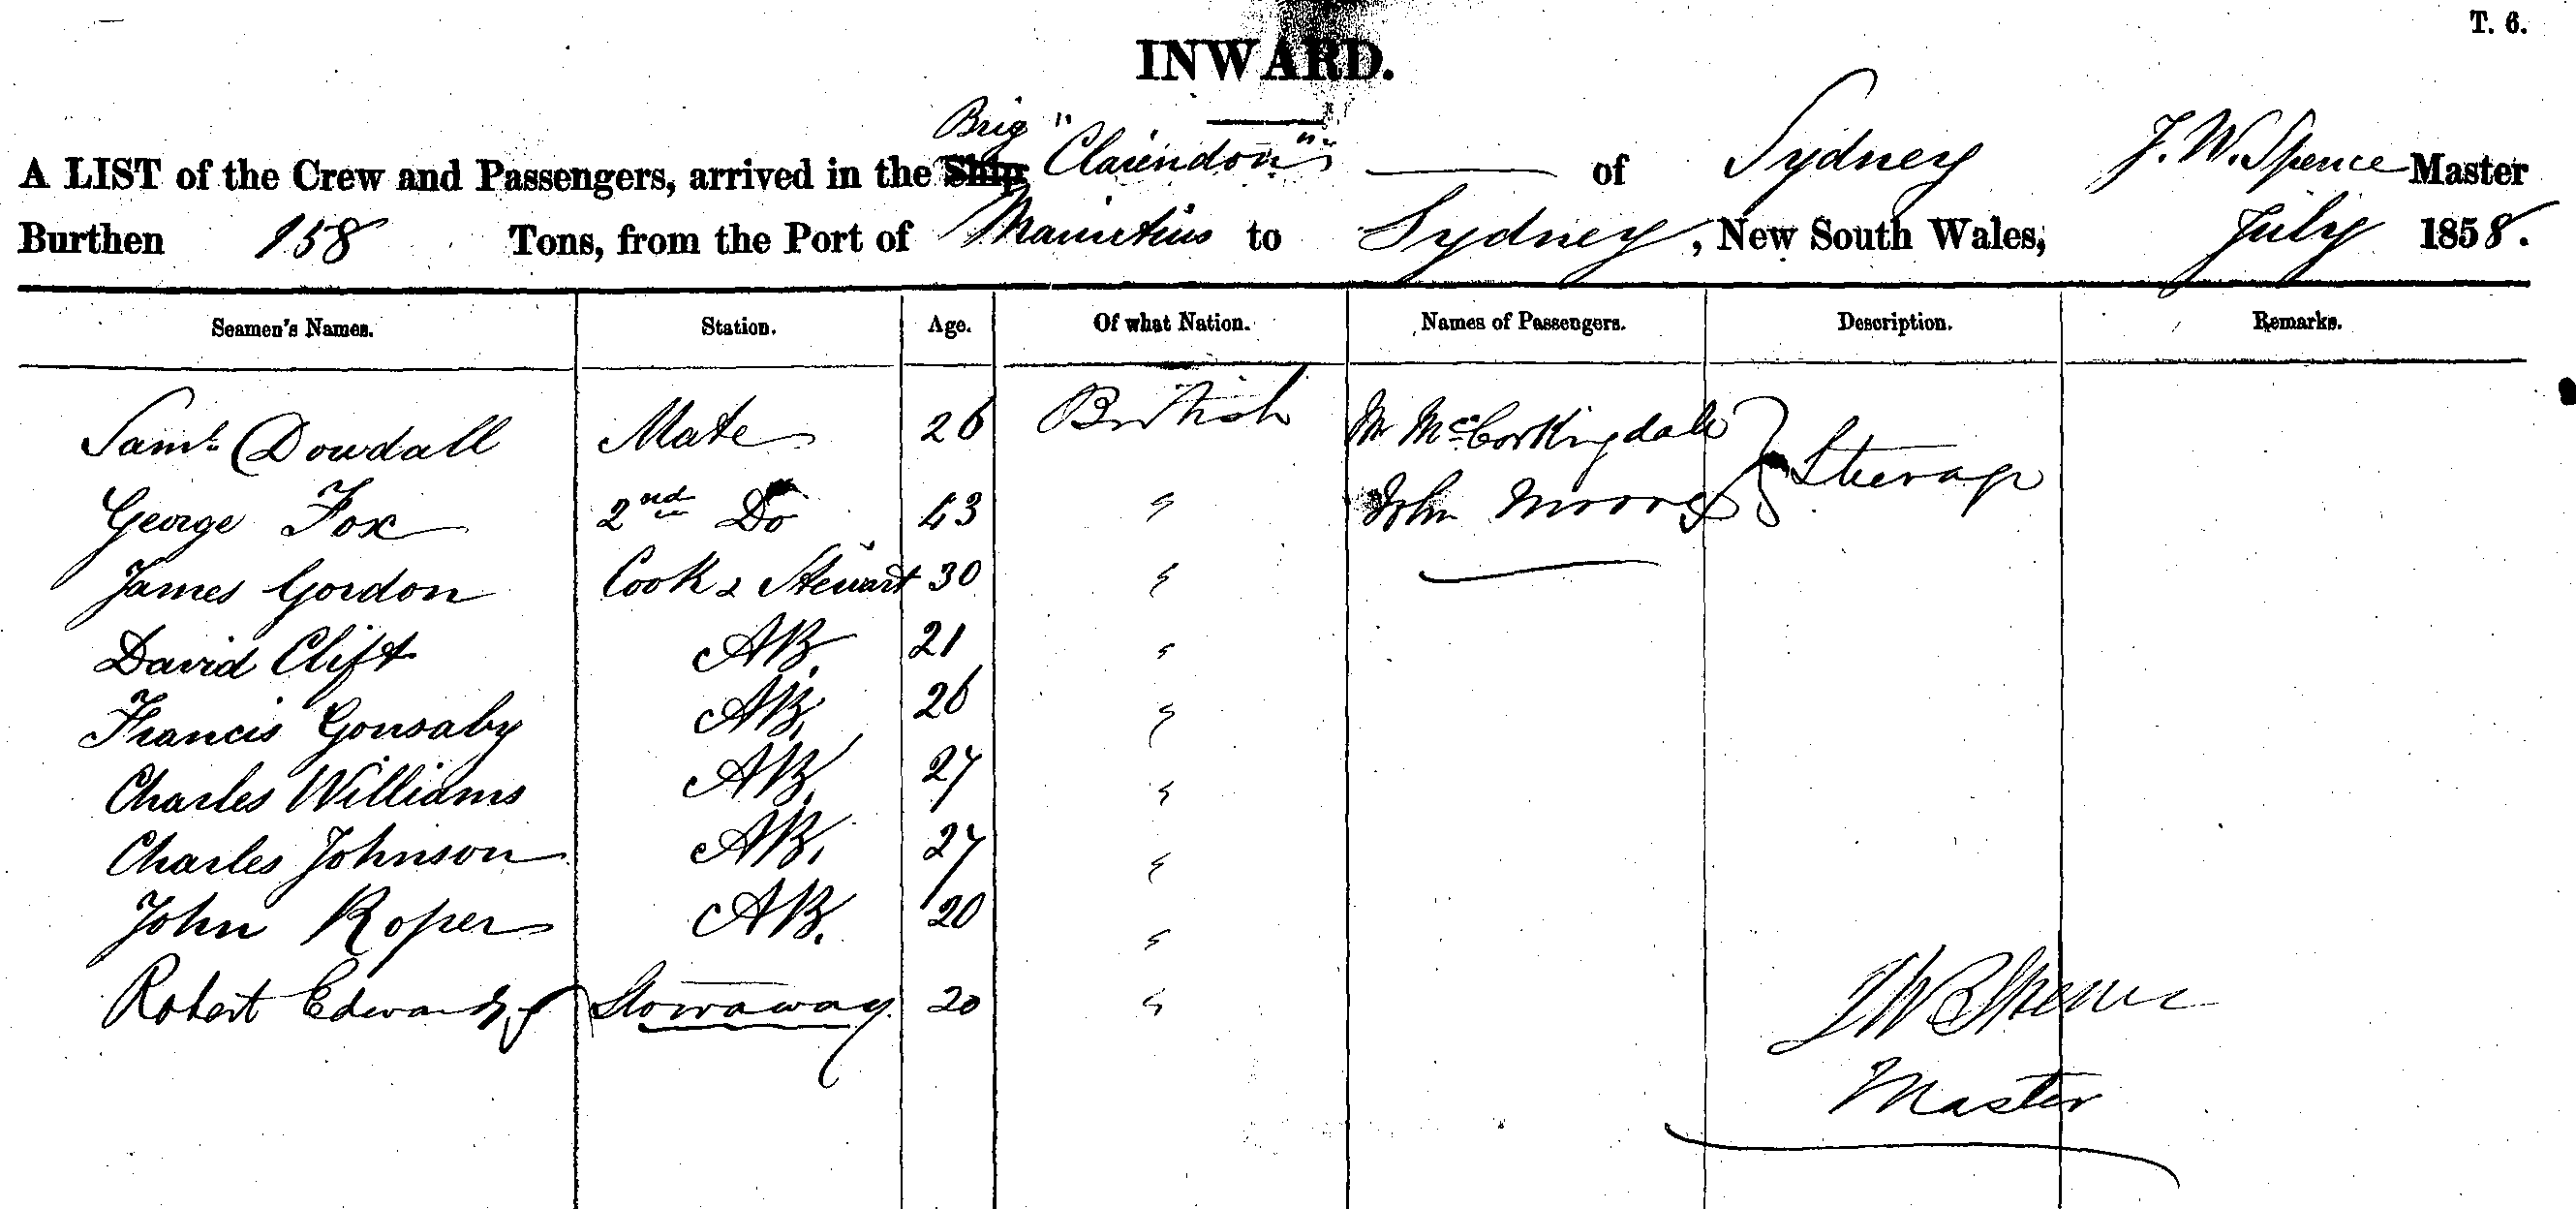 T. 6.
INWARD.
Brig "Clarendon"
A LIST of the Crew and Passengers, arrived in the Ship of Sydney J. W. Spence Master
Burthen 158 Tons, from the Port of Mauritius to Sydney, New South Wales, July 1858.
Seamen's Names. Station. Age. Of what Nation. Names of Passengers. Description. Remarks.
Saml. Dowdall Mate 26 British Mr McCorkingdale Steerage
George Fox 2nd Do 43 " John Moore
James Gordon Cook & Stewart 30 "
David Clift AB. 21 "
Francis Gonsaby AB. 26 "
Charles Williams AB. 27 "
Charles Johnson AB. 27 "
John Roper AB. 20 "
Robert Edwards Stowaway 20 "
J W Spence
Master